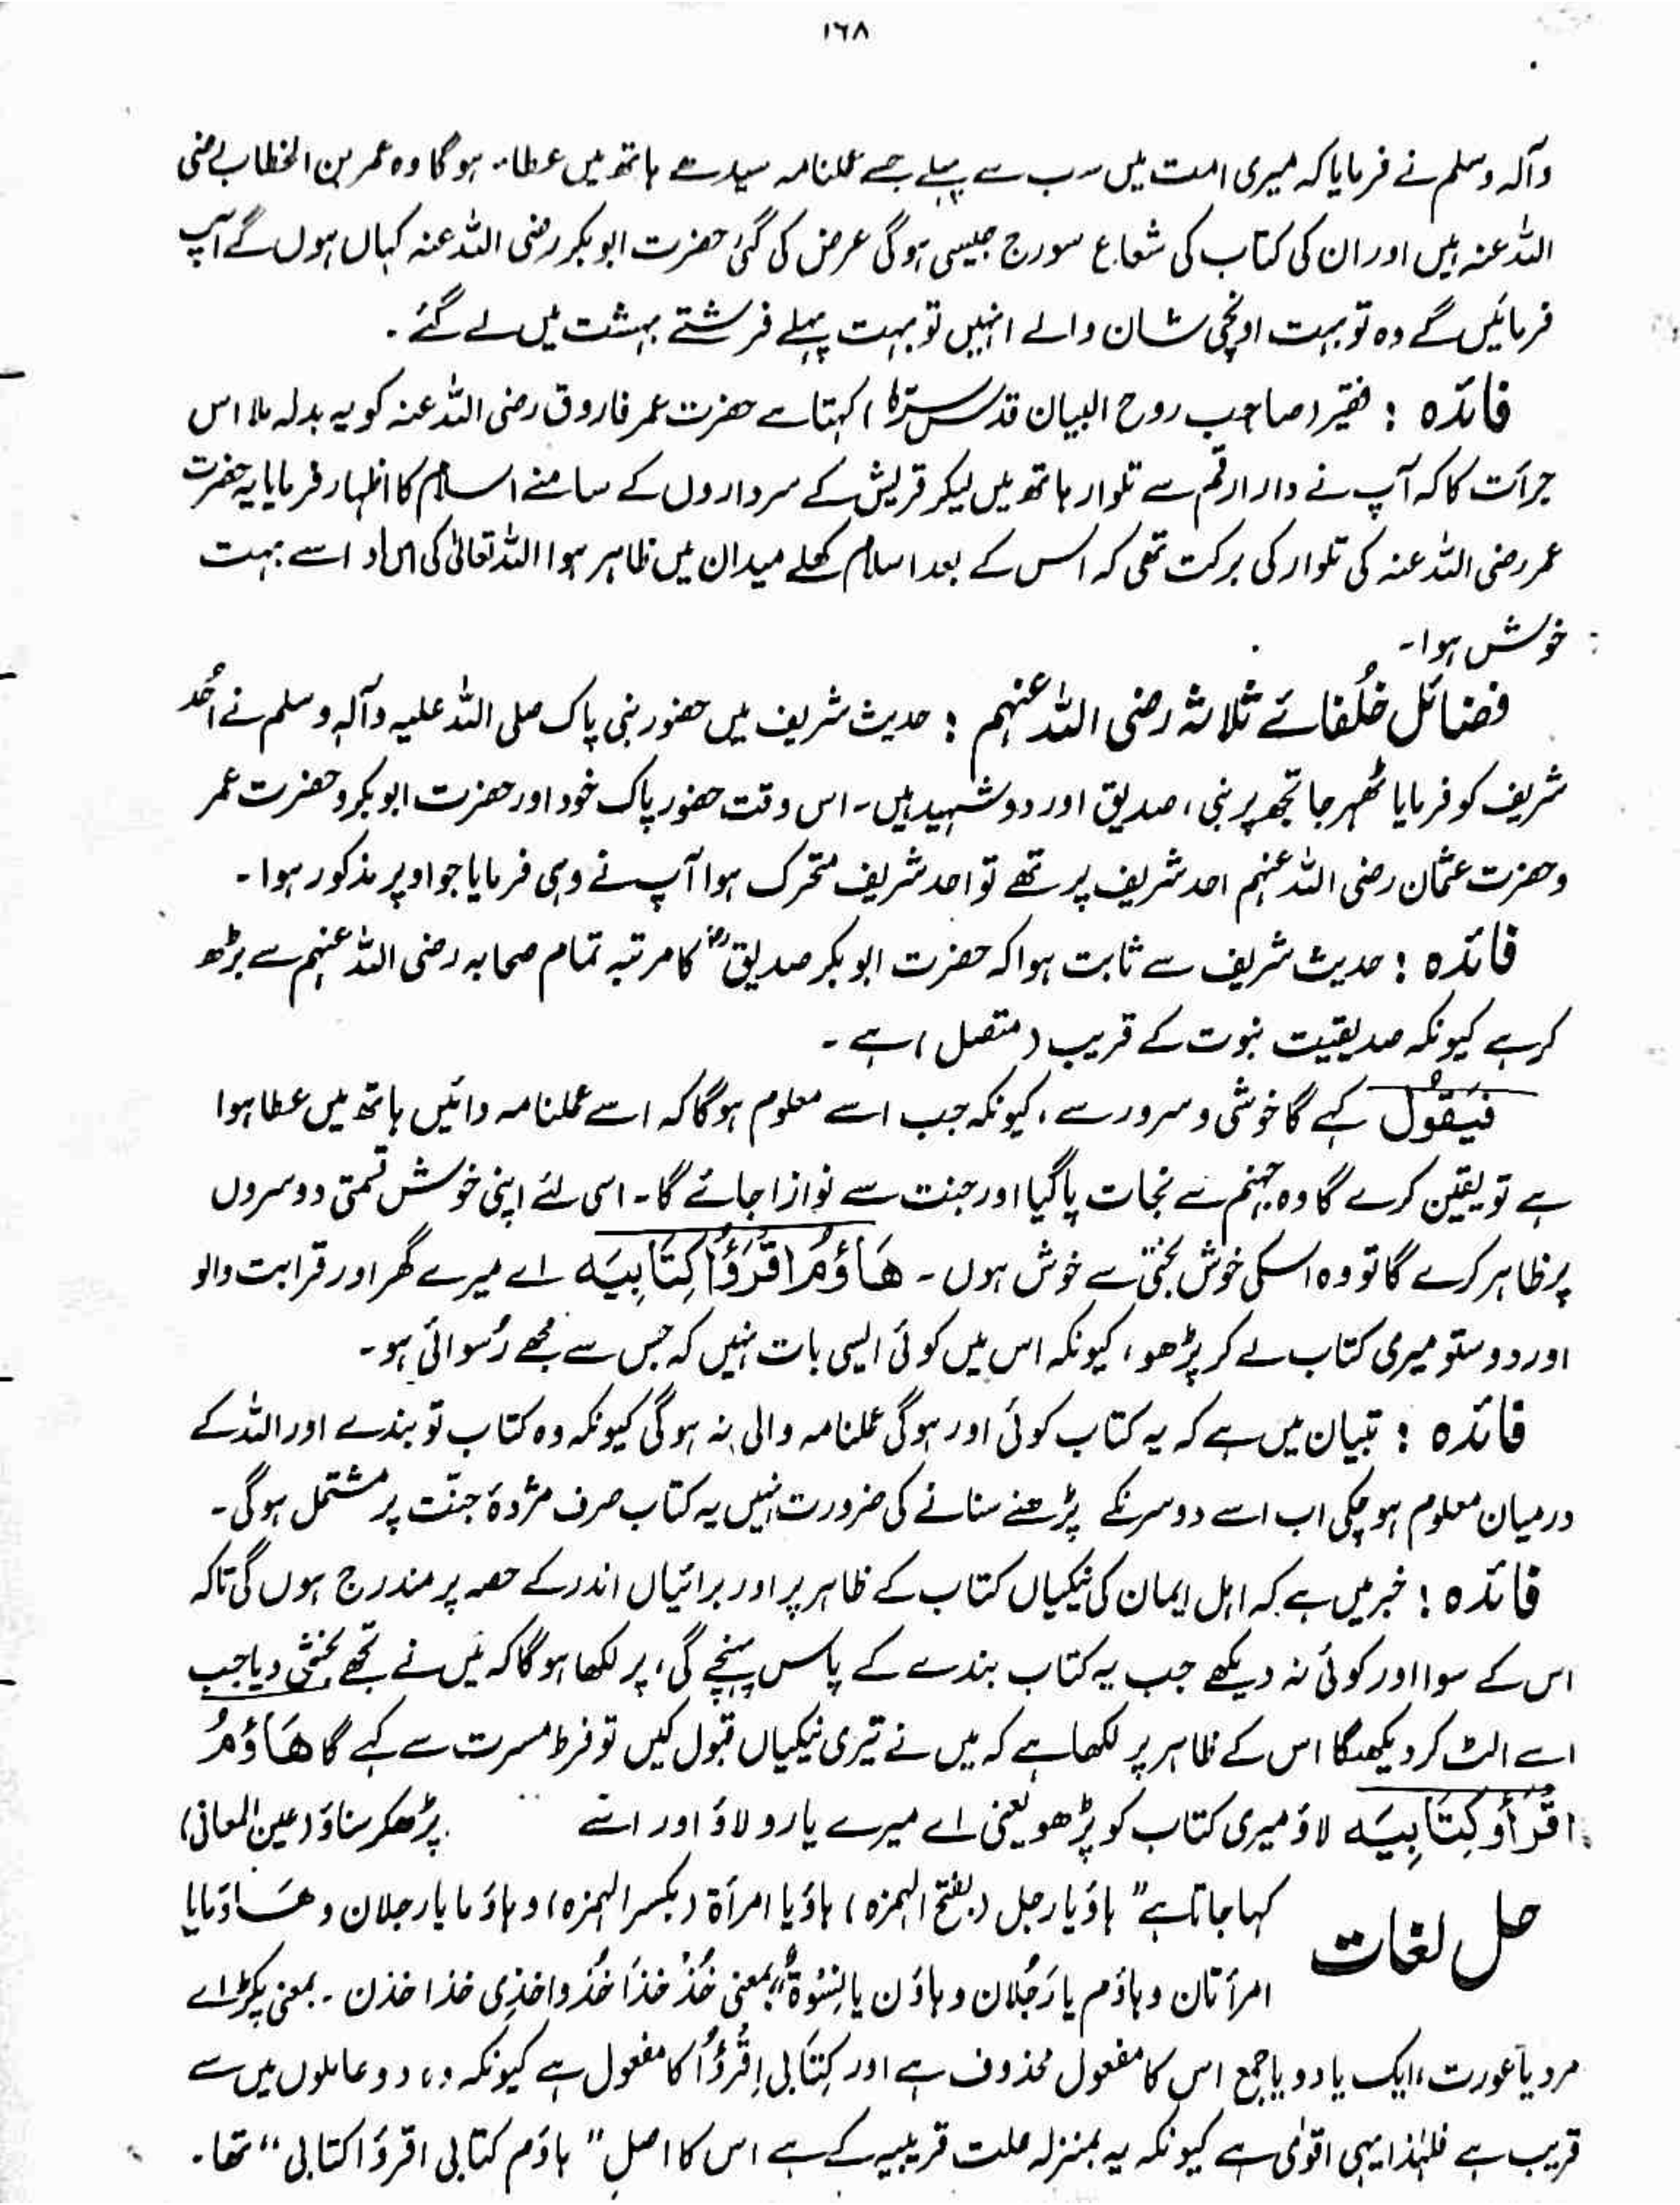 ۱۶۸
وآلہ وسلم نے فرمایا کہ میری امت میں سب سے پہلے جسے عملنامہ سیدھے ہاتھ میں عطاء ہوگا وہ عمر بن الخطاب رضی
اللہ عنہ ہیں اور ان کی کتاب کی شعاع سورج جیسی ہوگی عرض کی گئی حضرت ابوبکر رضی اللہ عنہ کہاں ہوں گے آپ
فرمائیں گے وہ تو بہت اونچی شان والے انہیں تو بہت پہلے فرشتے بہشت میں لے گئے ۔
فائدہ : فقیر (صاحب روح البیان قدس سرہٗ) کہتا ہے حضرت عمر فاروق رضی اللہ عنہ کو یہ بدلہ ملا اس
جرأت کا کہ آپ نے دار ارقم سے تلوار ہاتھ میں لیکر قریش کے سرداروں کے سامنے اسلام کا اظہار فرمایا یہ حضرت
عمر رضی اللہ عنہ کی تلوار کی برکت تھی کہ اس کے بعد اسلام کھلے میدان میں ظاہر ہوا اللہ تعالیٰ کی اس سے بہت
خوش ہوا۔
فضائل خُلفائے ثلاثہ رضی اللہ عنہم : حدیث شریف میں حضور نبی پاک صلی اللہ علیہ وآلہ وسلم نے اُحد
شریف کو فرمایا ٹھہر جا تجھ پر نبی ، صدیق اور دو شہید ہیں ۔ اس وقت حضور پاک خود اور حضرت ابوبکر و حضرت عمر
و حضرت عثمان رضی اللہ عنہم احد شریف پر تھے تو احد شریف متحرک ہوا آپ نے وہی فرمایا جو اوپر مذکور ہوا ۔
فائدہ : حدیث شریف سے ثابت ہوا کہ حضرت ابوبکر صدیق رضؓ کا مرتبہ تمام صحابہ رضی اللہ عنہم سے بڑھ
کر ہے کیونکہ صدیقیت نبوت کے قریب (متصل) ہے ۔
فَیَقُوْلُ کہے گا خوشی و سرور سے ، کیونکہ جب اسے معلوم ہوگا کہ اسے عملنامہ دائیں ہاتھ میں عطا ہوا
ہے تو یقین کرے گا وہ جہنم سے نجات پا گیا اور جنت سے نوازا جائے گا ۔ اسی لئے اپنی خوش قسمتی دوسروں
پر ظاہر کرے گا تو وہ اسکی خوش بختی سے خوش ہوں ۔ ھَاؤُمُ اقْرَؤُا کِتَابِیَہ اے میرے گھر اور قرابت والو
اور دوستو میری کتاب لے کر پڑھو ، کیونکہ اس میں کوئی ایسی بات نہیں کہ جس سے مجھے رُسوائی ہو ۔
فائدہ : تبیان میں ہے کہ یہ کتاب کوئی اور ہوگی عملنامہ والی نہ ہوگی کیونکہ وہ کتاب تو بندے اور اللہ کے
درمیان معلوم ہوچکی اب اسے دوسرے کے پڑھنے سنانے کی ضرورت نہیں یہ کتاب صرف مژدۂ جنت پر مشتمل ہوگی ۔
فائدہ : خبر میں ہے کہ اہل ایمان کی نیکیاں کتاب کے ظاہر پر اور برائیاں اندر کے حصہ پر مندرج ہوں گی تاکہ
اس کے سوا اور کوئی نہ دیکھے جب یہ کتاب بندے کے پاس پہنچے گی ، پر لکھا ہوگا کہ میں نے تجھے بخش دیا جب
اسے الٹ کر دیکھیگا اس کے ظاہر پر لکھا ہے کہ میں نے تیری نیکیاں قبول کیں تو فرط مسرت سے کہے گا ھَاؤُمُ
اقْرَأُوْ کِتَابِیَہ لاؤ میری کتاب کو پڑھو یعنی اے میرے یارو لاؤ اور اسے پڑھکر سناؤ (عین المعانی)
حل لغات
کہا جاتا ہے “ ہاؤ یا رجل (بفتح الہمزہ) ہاؤ یا امرأۃ (بکسر الہمزہ) و ہاؤما یا رجلان و ھاؤما یا
امرأتان و ہاؤم یا رَجُلان و ہاؤن یا نِسْوۃٌ” بمعنی خُذْ خذَا خُذُوا خذِی خذا خذن ۔ بمعنی پکڑ اے
مرد یا عورت ، ایک یا دو یا جمع اس کا مفعول محذوف ہے اور کِتَابِی اِقْرَؤُا کا مفعول ہے کیونکہ وہ دو عاملوں میں سے
قریب ہے فلہٰذا یہی اقویٰ ہے کیونکہ یہ بمنزلہ علت قریبیہ کے ہے اس کا اصل “ ہاؤم کتابی اقرؤا کتابی “ تھا ۔